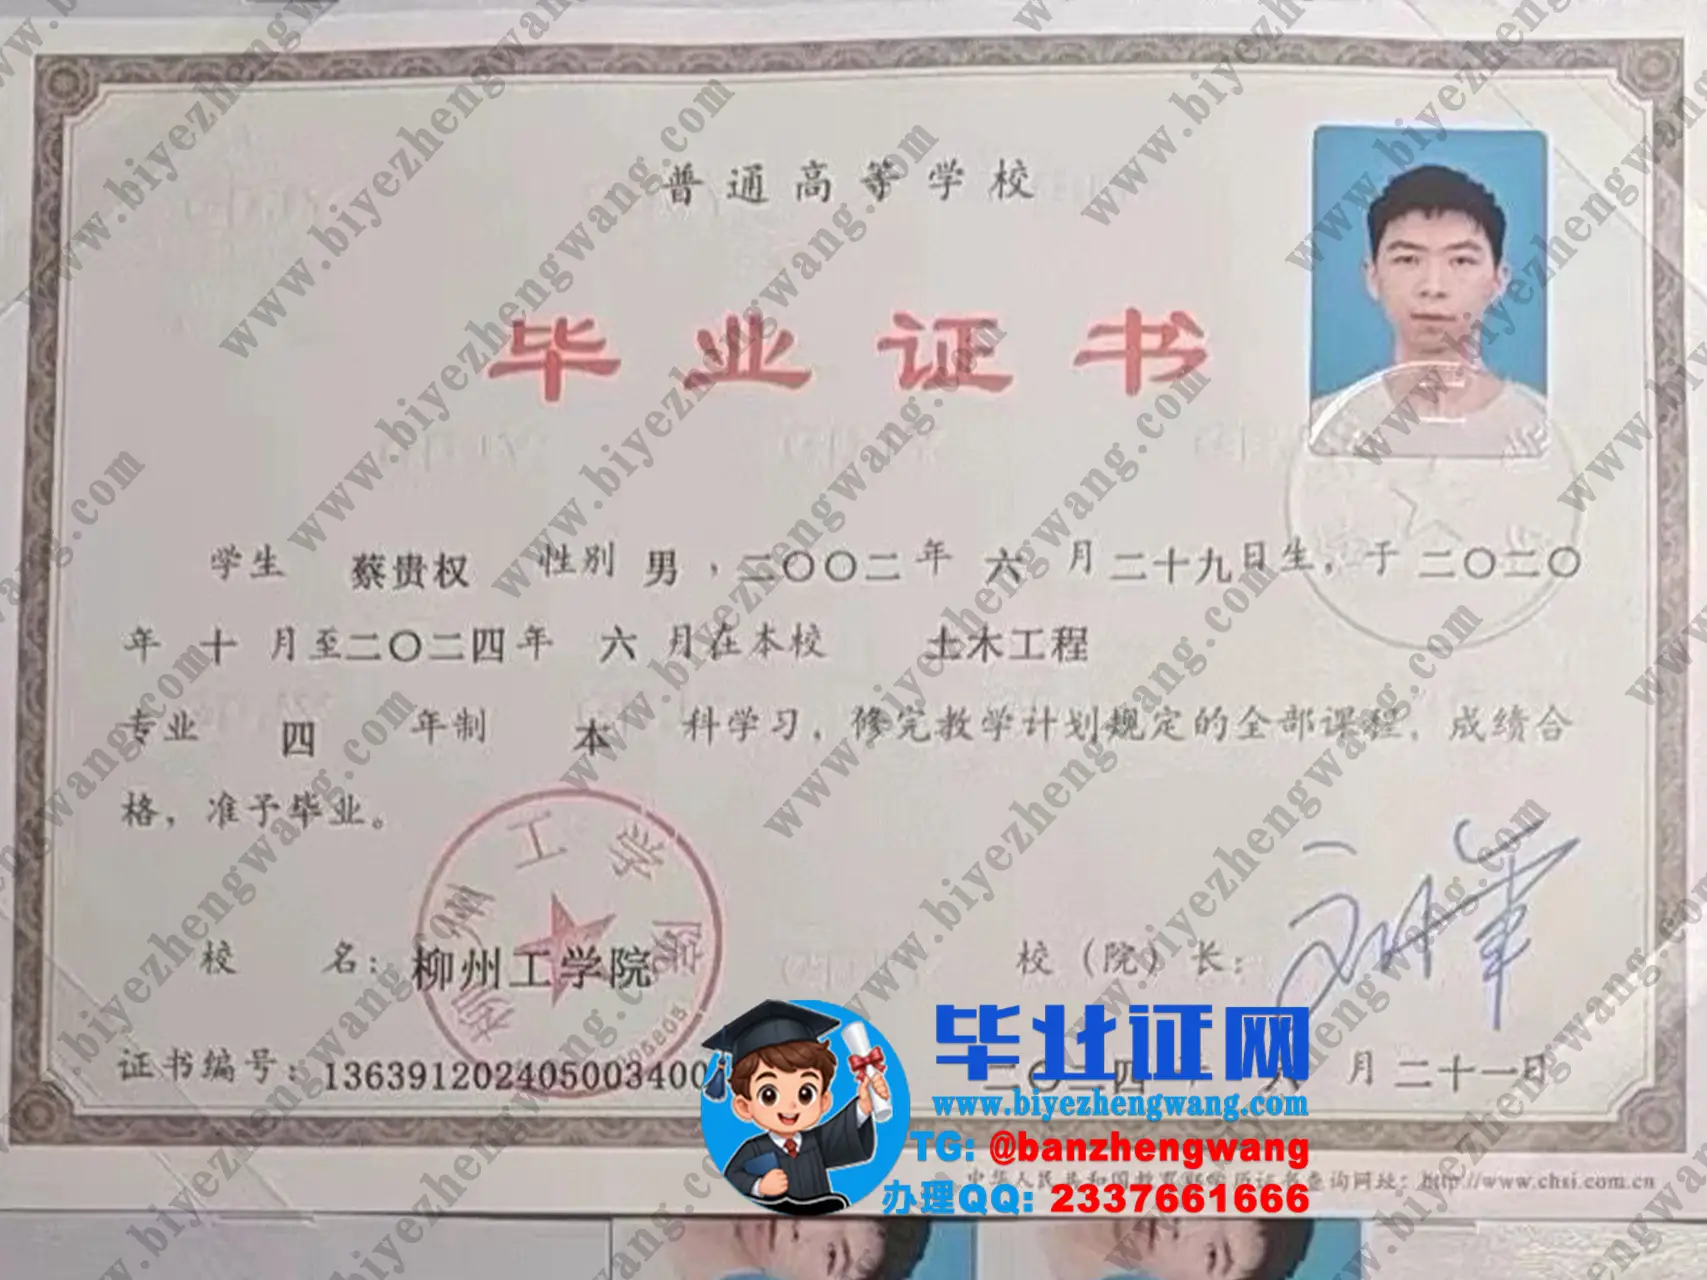 普通高等学校
毕业证书
学生 蔡贵权 性别 男，二〇〇二年 六 月二十九日生，于二〇二〇
年 十 月至二〇二四年 六 月在本校 土木工程
专业 四 年制 本 科学习，修完教学计划规定的全部课程，成绩合
格，准予毕业。
柳州工学院
校 名：柳州工学院
校（院）长：
证书编号：13639120240500340
二〇二四 六 月二十一日
毕业证网
www.biyezhengwang.com
TG: @banzhengwang
办理QQ: 2337661666
中华人民共和国教育部学历证书查询网址：http://www.chsi.com.cn
www.biyezhengwang.com